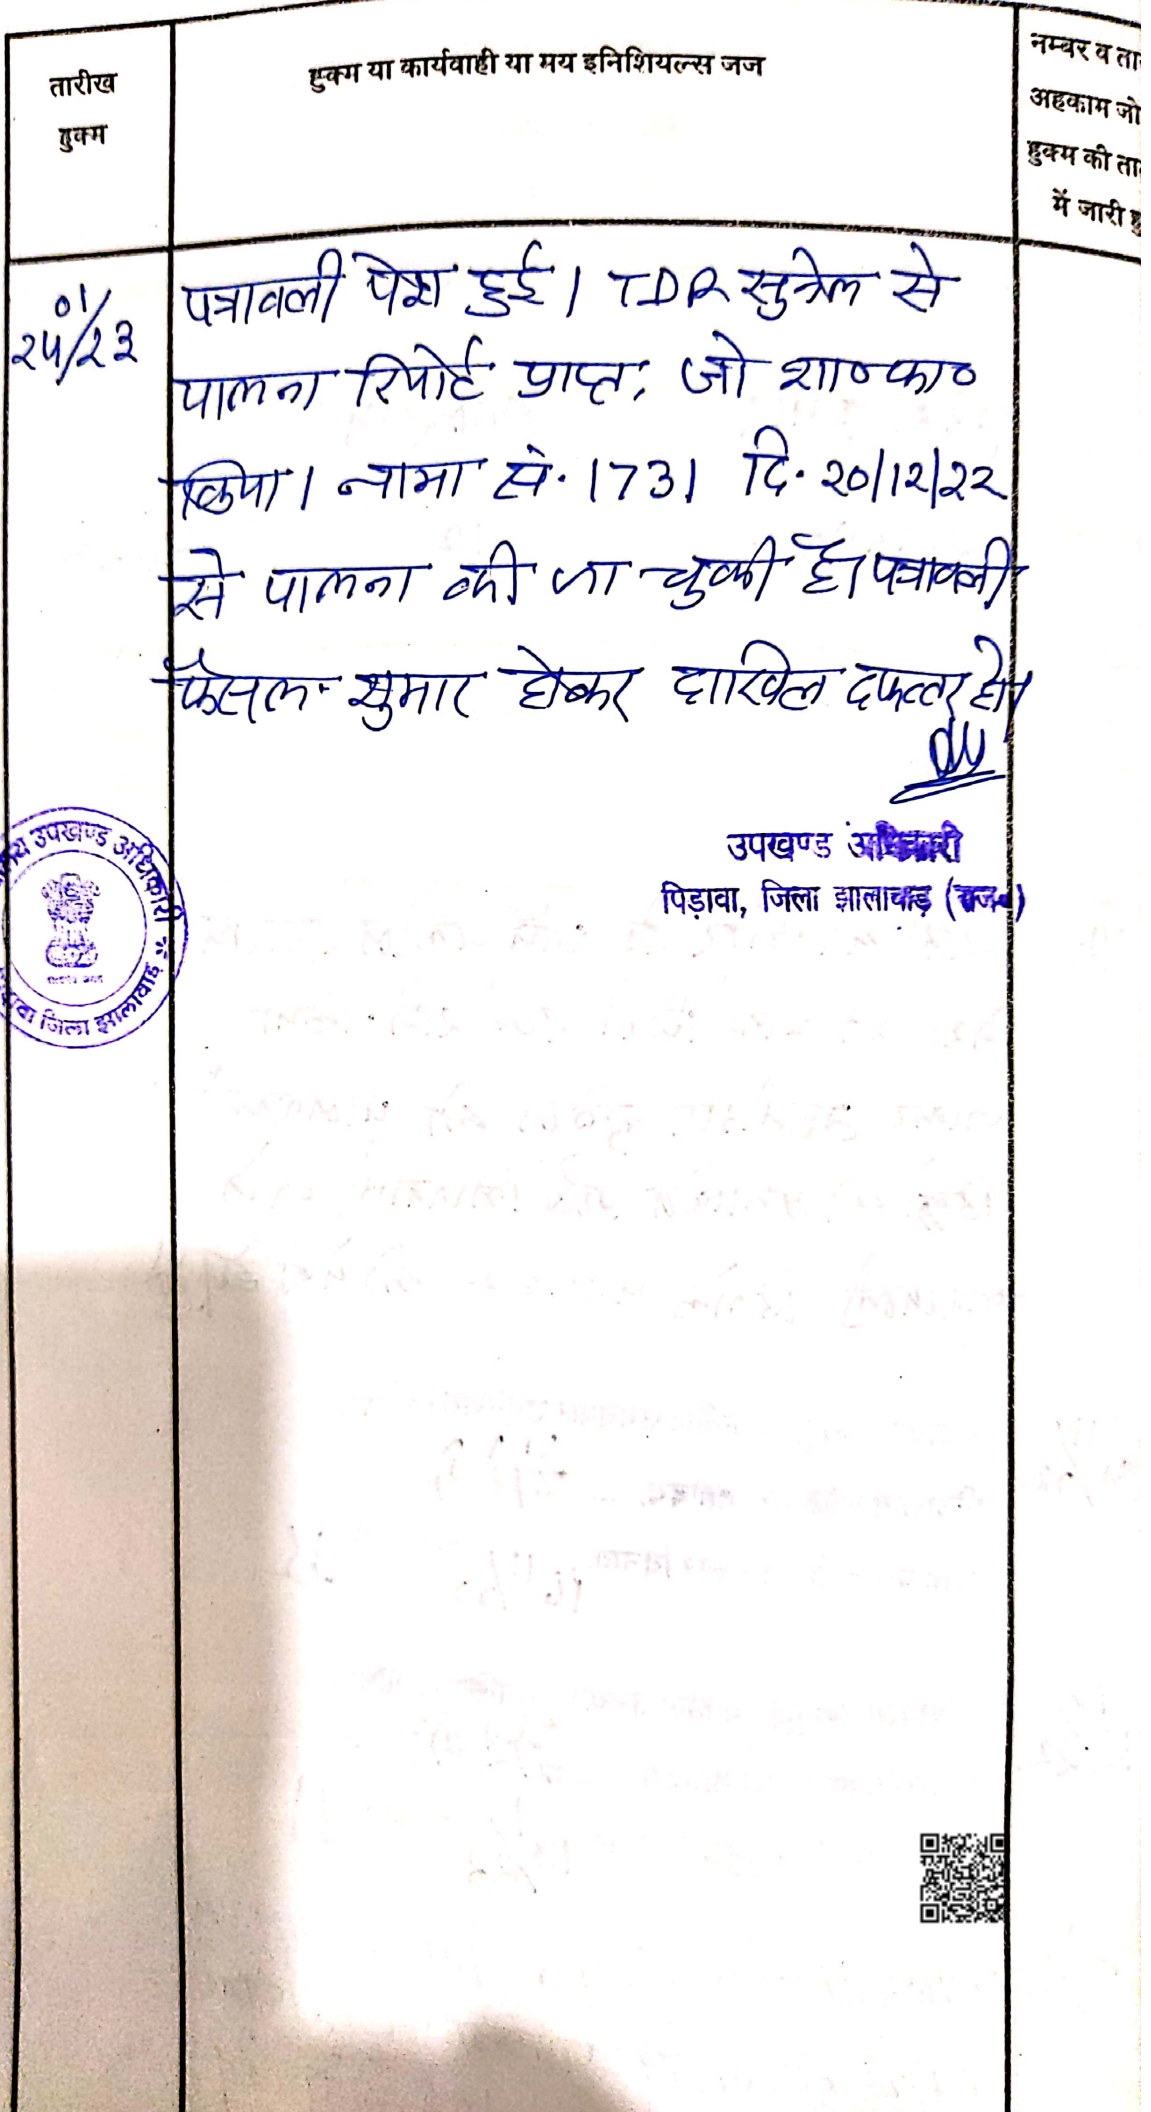 तारीख
हुक्म
हुक्म या कार्यवाही या मय इनिशियल्स जज
नम्बर व ता
अहकाम जो
हुक्म की ता
में जारी हु
01/
25/23
पत्रावली पेश हुई। TDR सुनेल से
पालना रिपोर्ट प्राप्त, जो शा०का०
किया। नामा सं. 1731 दि. 20/12/22
से पालना की जा चुकी है। पत्रावली
फैसल शुमार होकर दाखिल दफ्तर हो।
उपखण्ड अधिकारी
पिड़ावा, जिला झालावाड़ (राज०)
उपखण्ड अधिकारी
जिला झालावाड़